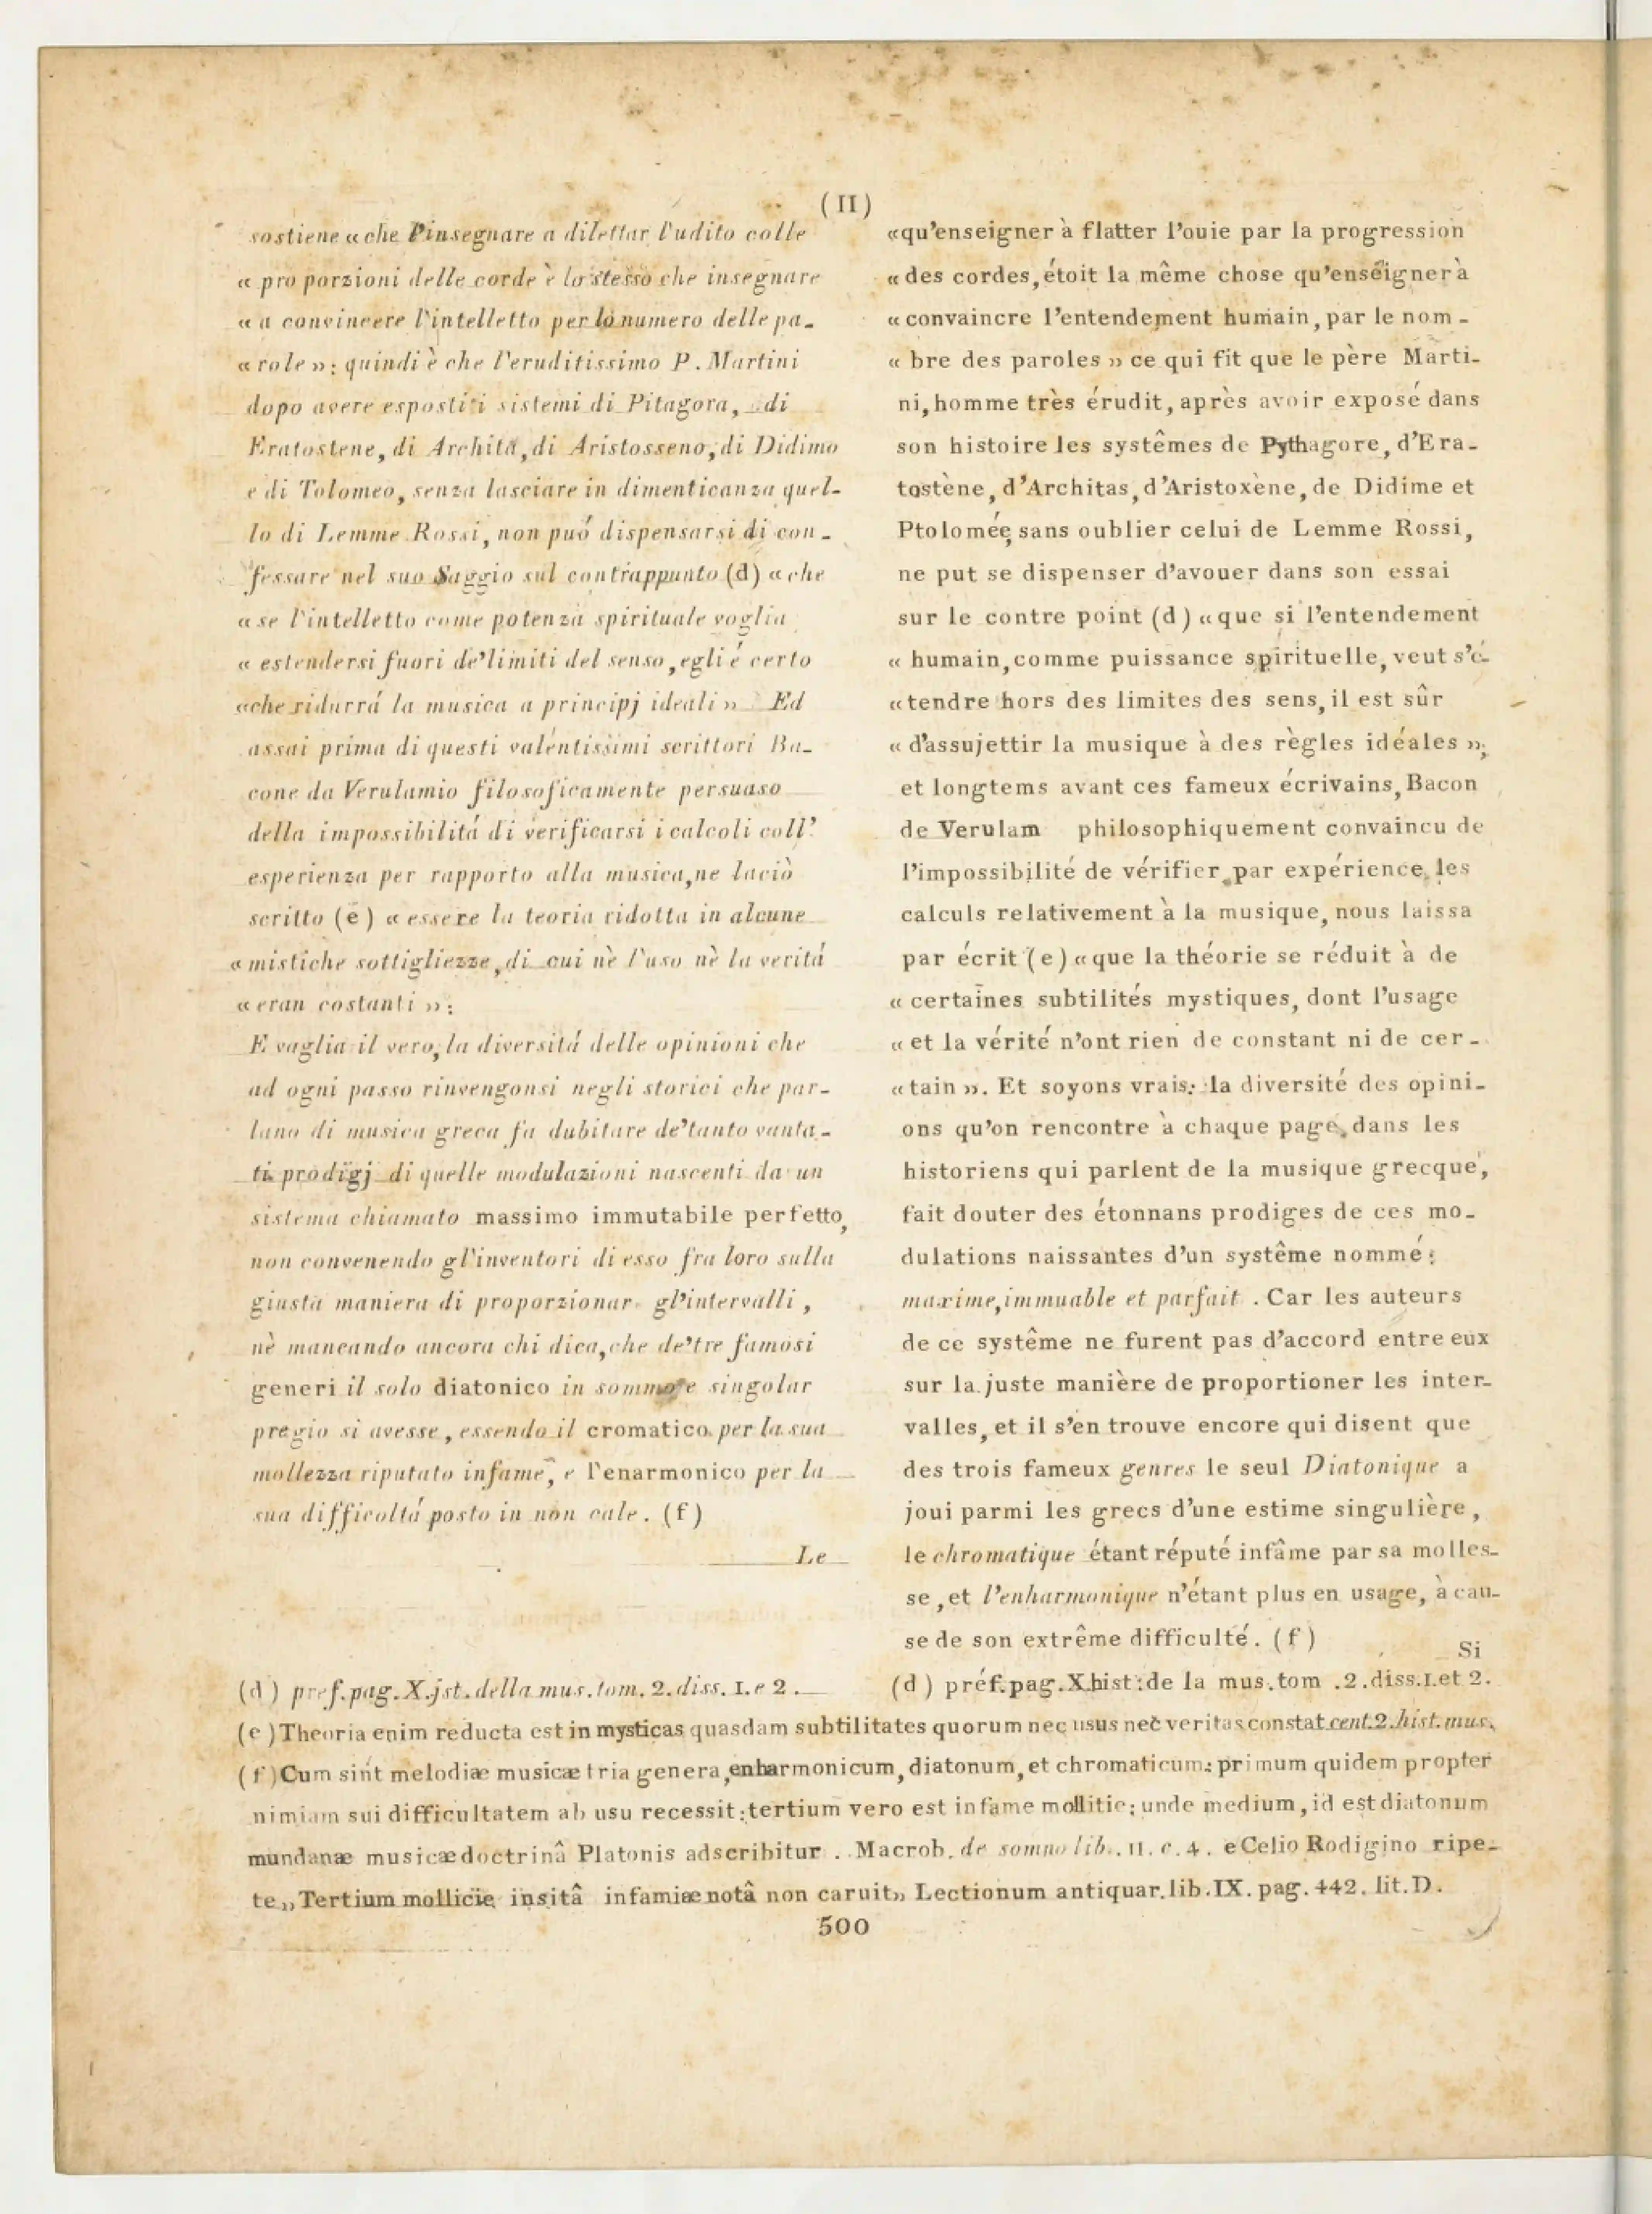 (II)
sostiene « che l'insegnare a dilettar l'udito colle
« proporzioni delle corde è lo stesso che insegnare
« a convincere l'intelletto per lo numero delle pa-
« role » : quindi è che l'eruditissimo P. Martini
dopo avere esposti i sistemi di Pitagora, di
Eratostene, di Archita, di Aristosseno, di Didimo
e di Tolomeo, senza lasciare in dimenticanza quel-
lo di Lemme Rossi, non puó dispensarsi di con-
fessare nel suo Saggio sul contrappunto (d) « che
« se l'intelletto come potenza spirituale voglia
« estendersi fuori de'limiti del senso, egli é certo
« che ridurrá la musica a principj ideali » Ed
assai prima di questi valentissimi scrittori Ba-
cone da Verulamio filosoficamente persuaso
della impossibilitá di verificarsi i calcoli coll'
esperienza per rapporto alla musica, ne laciò
scritto (e) « essere la teoria ridotta in alcune
« mistiche sottigliezze, di cui nè l'uso nè la veritá
« eran costanti » :
E vaglia il vero, la diversitá delle opinioni che
ad ogni passo rinvengonsi negli storici che par-
lano di musica greca fa dubitare de'tanto vanta-
ti prodigj di quelle modulazioni nascenti da un
sistema chiamato massimo immutabile perfetto,
non convenendo gl'inventori di esso fra loro sulla
giusta maniera di proporzionar gl'intervalli,
nè mancando ancora chi dica, che de'tre famosi
generi il solo diatonico in sommo e singolar
pregio si avesse, essendo il cromatico per la sua
mollezza riputato infame, e l'enarmonico per la
sua difficoltá posto in non cale. (f)
Le
«qu'enseigner à flatter l'ouie par la progression
« des cordes, étoit la même chose qu'enseigner à
« convaincre l'entendement humain, par le nom-
« bre des paroles » ce qui fit que le père Marti-
ni, homme très érudit, après avoir exposé dans
son histoire les systêmes de Pythagore, d'Era-
tostène, d'Architas, d'Aristoxène, de Didime et
Ptolomée, sans oublier celui de Lemme Rossi,
ne put se dispenser d'avouer dans son essai
sur le contre point (d) « que si l'entendement
« humain, comme puissance spirituelle, veut s'é-
« tendre hors des limites des sens, il est sûr
« d'assujettir la musique à des règles idéales »;
et longtems avant ces fameux écrivains, Bacon
de Verulam philosophiquement convaincu de
l'impossibilité de vérifier par expérience les
calculs relativement à la musique, nous laissa
par écrit (e) « que la théorie se réduit à de
« certaines subtilités mystiques, dont l'usage
« et la vérité n'ont rien de constant ni de cer-
« tain ». Et soyons vrais: la diversité des opini-
ons qu'on rencontre à chaque page, dans les
historiens qui parlent de la musique grecque,
fait douter des étonnans prodiges de ces mo-
dulations naissantes d'un systême nommé:
maxime, immuable et parfait. Car les auteurs
de ce systême ne furent pas d'accord entre eux
sur la juste manière de proportioner les inter-
valles, et il s'en trouve encore qui disent que
des trois fameux genres le seul Diatonique a
joui parmi les grecs d'une estime singulière,
le chromatique étant réputé infâme par sa molles-
se, et l'enharmonique n'étant plus en usage, à cau-
se de son extrême difficulté. (f)
Si
(d) pref. pag. X. jst. della mus. tom. 2. diss. I. e 2.
(d) préf. pag. X. hist: de la mus. tom. 2. diss. I. et 2.
(e) Theoria enim reducta est in mysticas quasdam subtilitates quorum nec usus nec veritas constat cent. 2. hist. mus.
(f) Cum sint melodiæ musicæ tria genera, enharmonicum, diatonum, et chromaticum: primum quidem propter
nimiam sui difficultatem ab usu recessit: tertium vero est infame mollitie: unde medium, id est diatonum
mundanæ musicæ doctrinâ Platonis adscribitur. Macrob. de somno lib. II. c. 4. e Celio Rodigino ripe-
te „ Tertium mollicie insitâ infamiæ notâ non caruit „ Lectionum antiquar. lib. IX. pag. 442. lit. D.
500